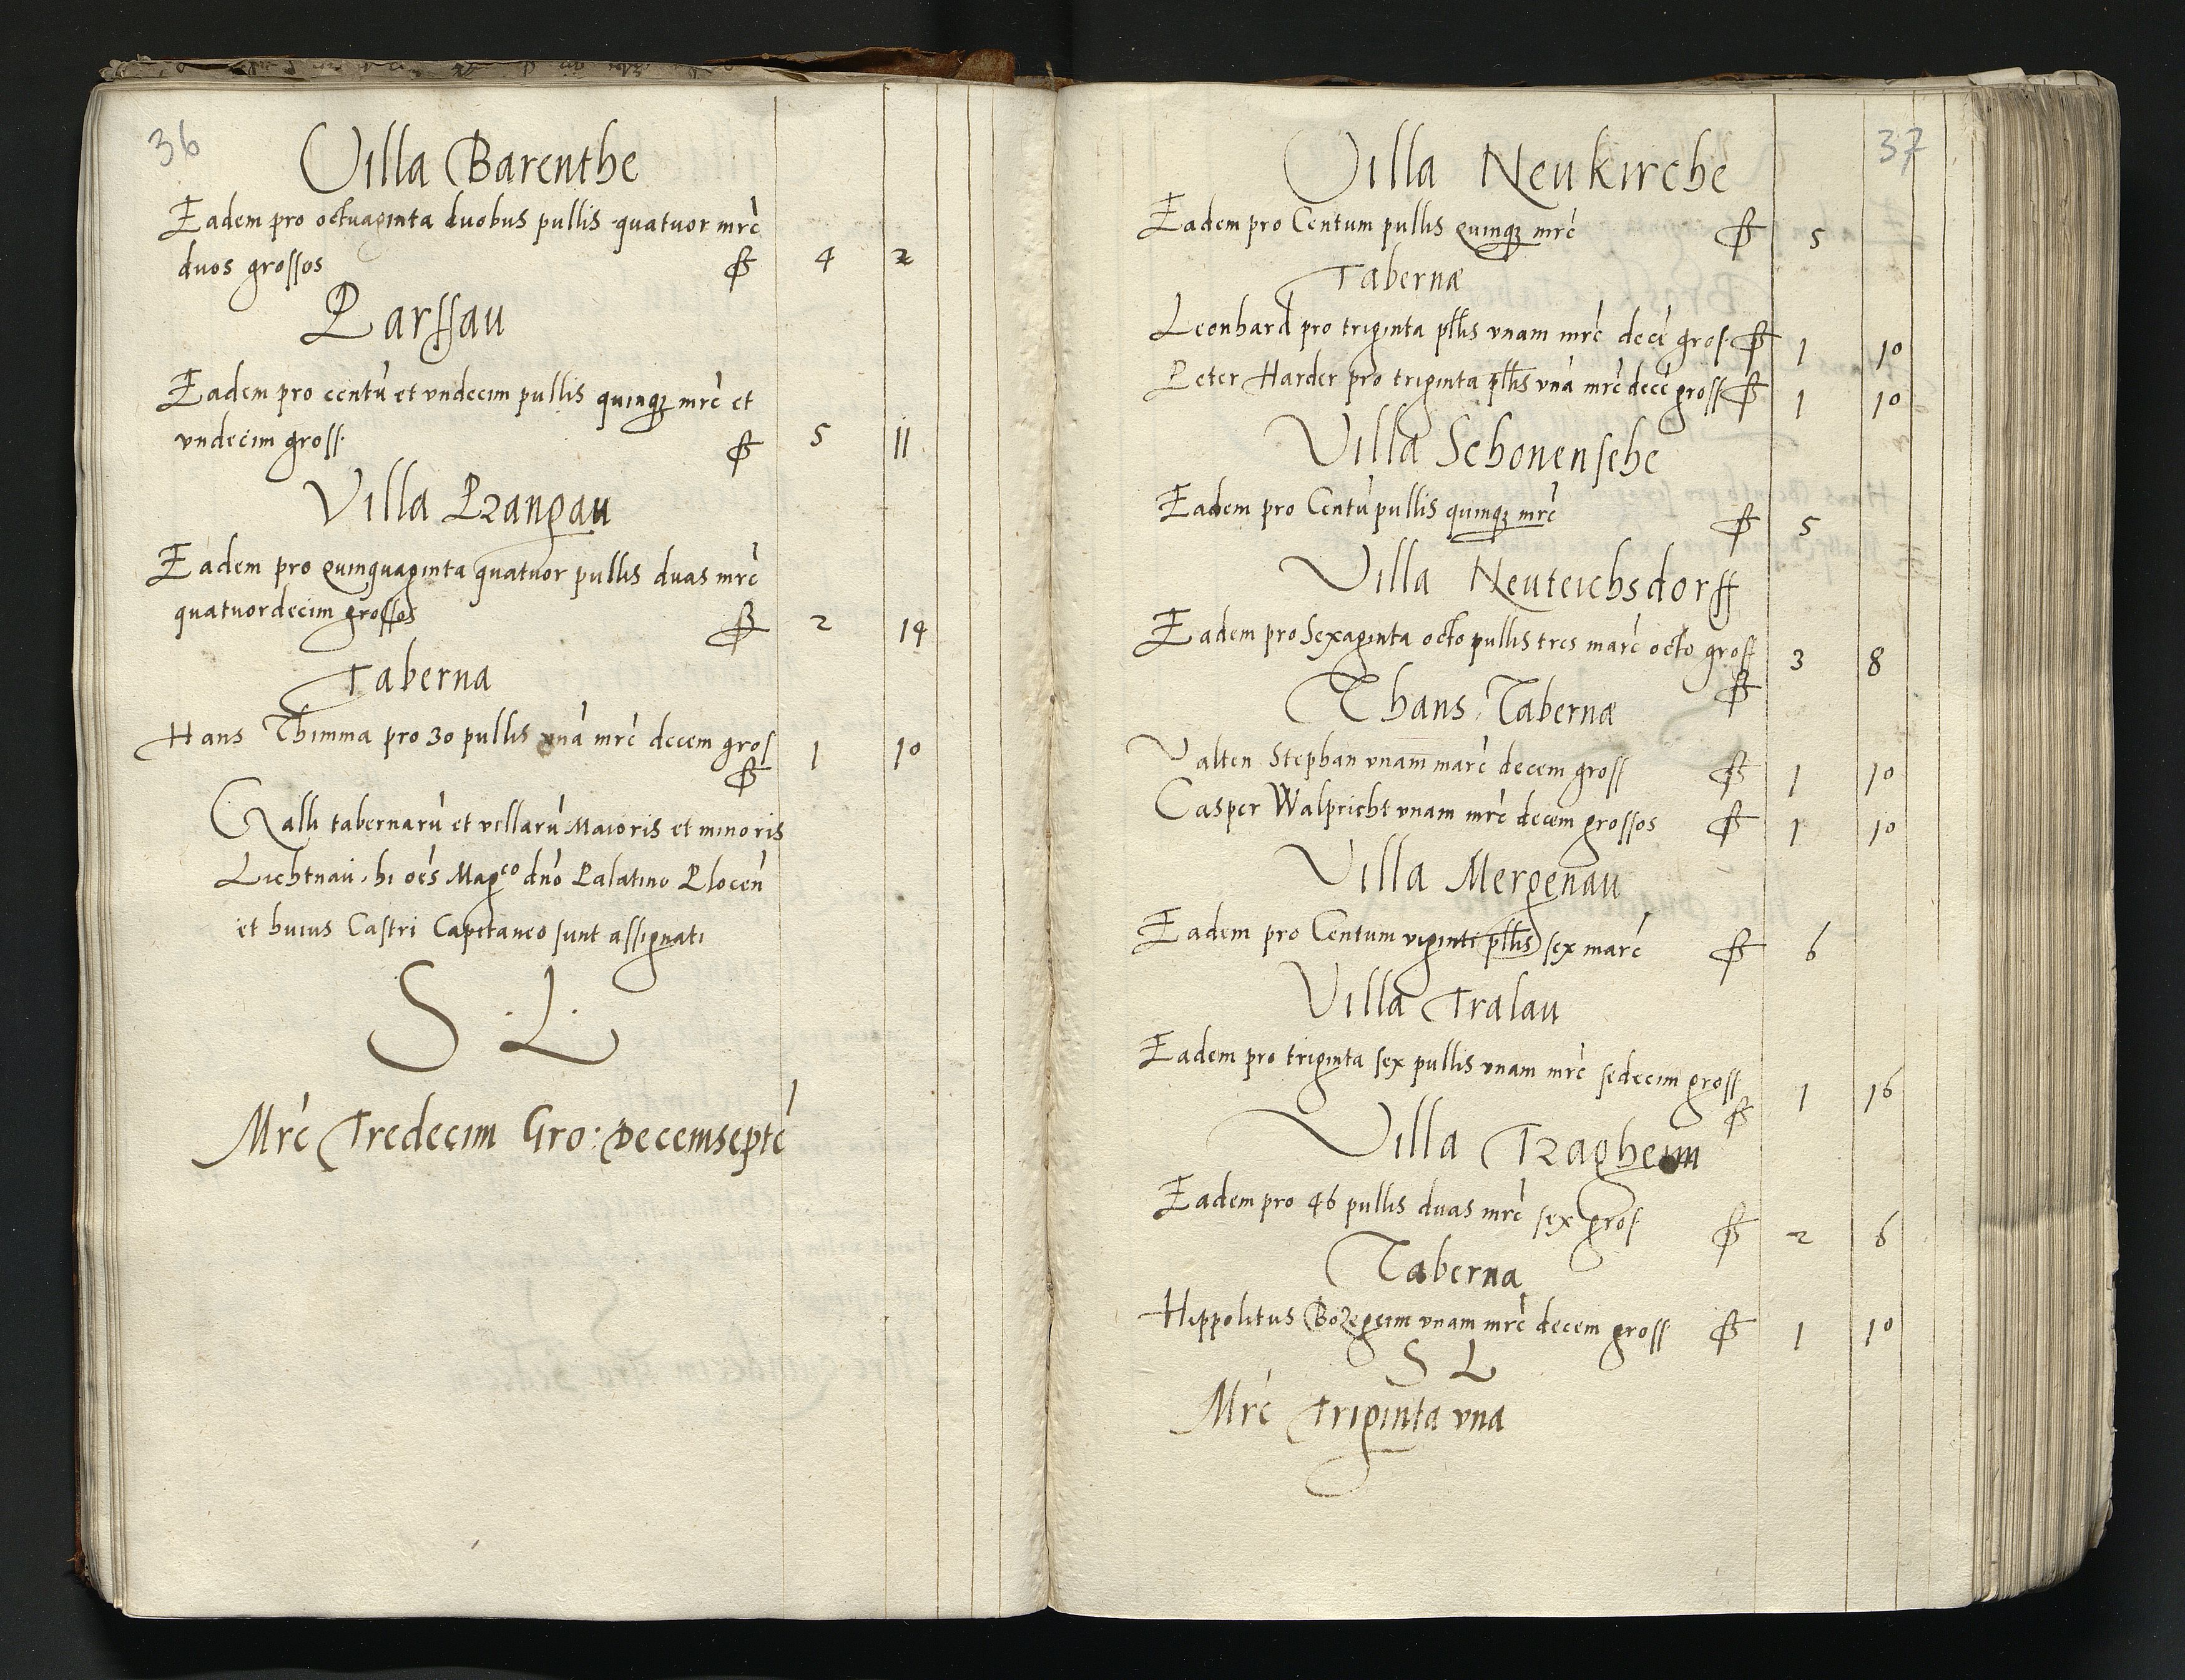 36
Villa Barenthe
Eadem pro octuaginta duobus pullis quatuor mrć
duos grossos ₰ 4 2
Parssau
Eadem pro centú et vndecim pullis quinqꝫ mrć et
vndecim gross ₰ 5 11
Villa Prangau
Eadem pro quinquaginta quatuor pullis duas mrć
quatuordecim grossos ₰ 2 14
Taberna
Hans Thimma pro 30 pullis vná mrć decem gros ₰ 1 10
Galli tabernarú et villarú Maioris et minoris
Lichtnaú. hi oés Magco dńo Palatino Plocen
et huius Castri Capitaneo sunt assignati
S. L.
Mrć Tredecim Gro: Decemsepté
37
Villa Neukirche
Eadem pro Centum pullis quinqꝫ mrć ₰ 5
Tabernæ
Leonhard pro triginta pllis vnam mrć decé gros ₰ 1 10
Peter Harder pro triginta pllis vná mrć decé gross ₰ 1 10
Villa Schonensehe
Eadem pro Centú pullis quinqꝫ mrć ₰ 5
Villa Neuteichsdorff
Eadem pro Sexaginta octo pullis tres marć octo gross ₰ 3 8
Thans Tabernæ
Valten Stephan vnam marć decem gross ₰ 1 10
Casper Walpricht vnam mrć decem grossos ₰ 1 10
Villa Mergenau
Eadem pro Centum viginti pllis sex marć ₰ 6
Villa Tralau
Eadem pro triginta sex pullis vnam mrć sedecim gross ₰ 1 16
Villa Tragheim
Eadem pro 46 pullis duas mrć sex gros ₰ 2 6
Taberna
Hippolitus vnam mrć decem gross ₰ 1 10
S L
Mrć Triginta vna